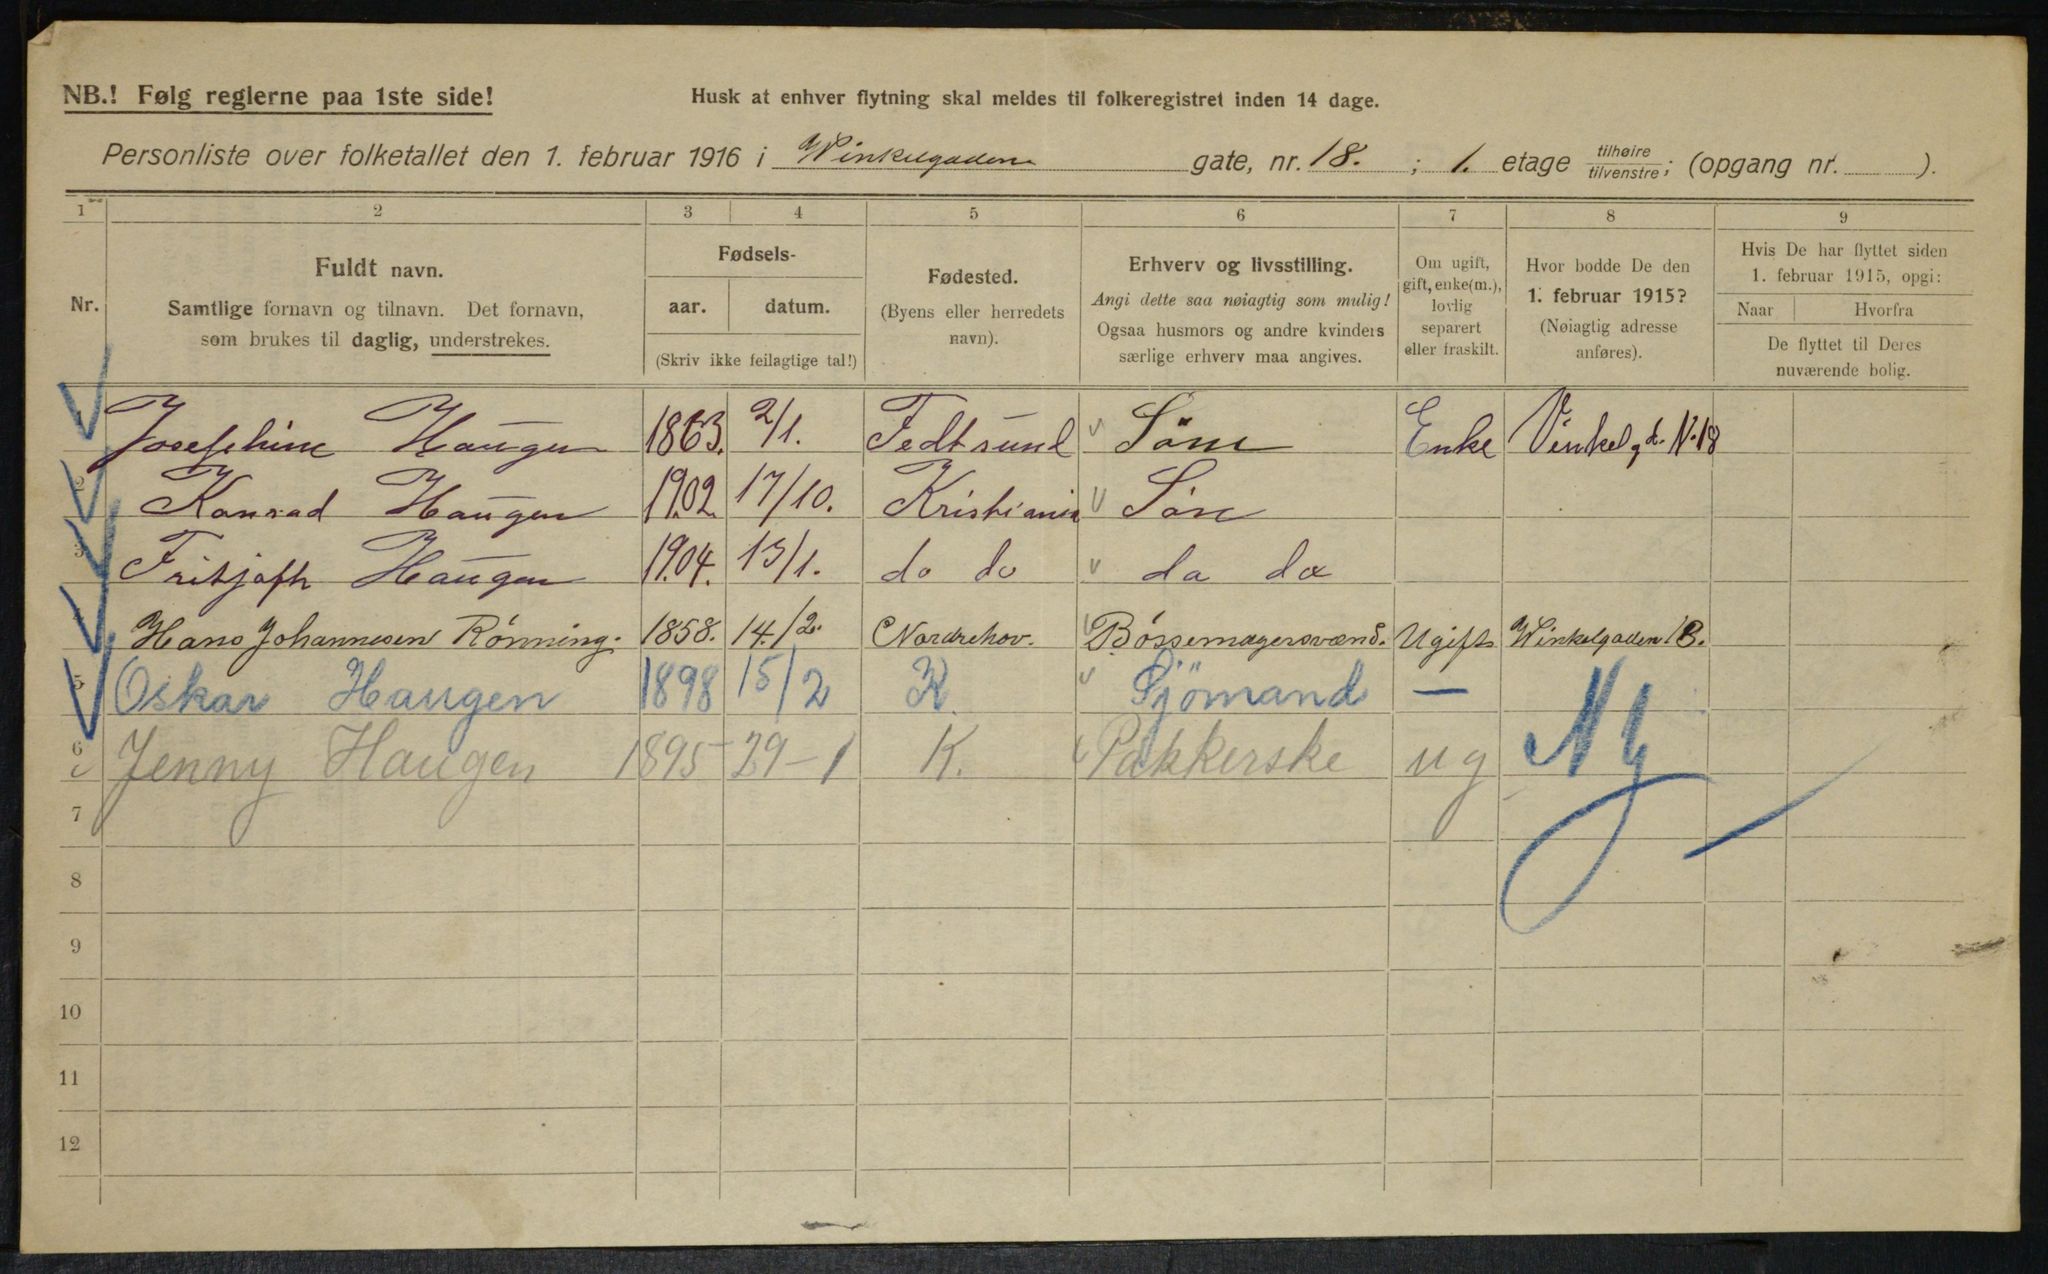 NB.! Følg reglerne paa 1ste side!
Husk at enhver flytning skal meldes til folkeregistret inden 14 dage.
Personliste over folketallet den 1. februar 1916 i Winkelgaden gate, nr. 18. ; 1. etage tilhøire/tilvenstre; (opgang nr. ).
1 2 3 4 5 6 7 8 9
Nr.
Fuldt navn.
Samtlige fornavn og tilnavn. Det fornavn,
som brukes til daglig, understrekes.
Fødsels-
aar. datum.
(Skriv ikke feilagtige tal!)
Fødested.
(Byens eller herredets
navn).
Erhverv og livsstilling.
Angi dette saa nøiagtig som mulig!
Ogsaa husmors og andre kvinders
særlige erhverv maa angives.
Om ugift,
gift, enke(m.),
lovlig
separert
eller fraskilt.
Hvor bodde De den
1. februar 1915?
(Nøiagtig adresse
anføres).
Hvis De har flyttet siden
1. februar 1915, opgi:
Naar Hvorfra
De flyttet til Deres
nuværende bolig.
Josephine Haugen 1863. 2/1. Fedtsund Enke Vinkelgd. N. 18
2 Konrad Haugen 1902. 17/10. Kristiania Søn
3 Fritjofh Haugen 1904. 13/1. do do do do
Hans Johannesen Rönning. 1858. 14/2. Nordrehov. Bössemagersvend. Ugift Winkelgaden 18.
5 Oskar Haugen 1898 15/2 K. Sjömand —
6 Jenny Haugen 1895 29-1 K. Pakkerske ug Ny
7
8
9
10
11
12